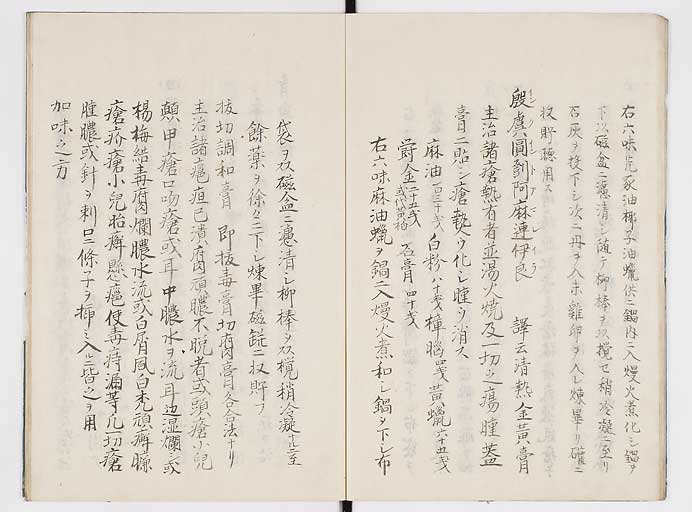 右六味先豕油椰子油蠟供ニ鍋内ニ入慢火煮化シ鍋ヲ
下ス磁盆ニ濾清シ随テ柳棒ヲ以攪セ稍冷凝ニ至リ
石灰ヲ投下シ次ニ丹ヲ入末雞卵ヲ入レ煉畢リ礶ニ
収貯聴用ス
殷虞圓剳阿麻連伊良 譯云清熱金黄膏
主治諸瘡熱有者並湯火焼及一切之瘍腫蓋
膏ニ貼シ瘡熱ヲ化シ腫ヲ消ス
麻油一百二十戔 白粉八十戔 樟脳四戔 黄蠟六十五戔
欝金二十五戔 石膏四十戔
右六味麻油蠟ヲ鍋ニ入慢火煮和シ鍋ヲ下シ布
袋ヲ以磁盆ニ濾清シ柳棒ヲ以攪稍冷凝ニ至
餘薬ヲ徐々ニ下シ煉畢磁礶ニ収貯フ
抜切調和膏 即抜毒膏切腐膏各合法ナリ
主治諸瘡疽已潰腐頑膿不脱者或頭瘡小兒
顛甲瘡口吻瘡或耳中膿水ヲ流耳边湿爛シ或
楊梅結毒腐爛膿水流或白屑風白禿頑癬臁
瘡疥瘡小兒胎癬懸癰便毒痔漏等凡一切瘡
腫膿或針ヲ刺口ニ條子ヲ挿ミ入ルニ皆之ヲ用
加味之方